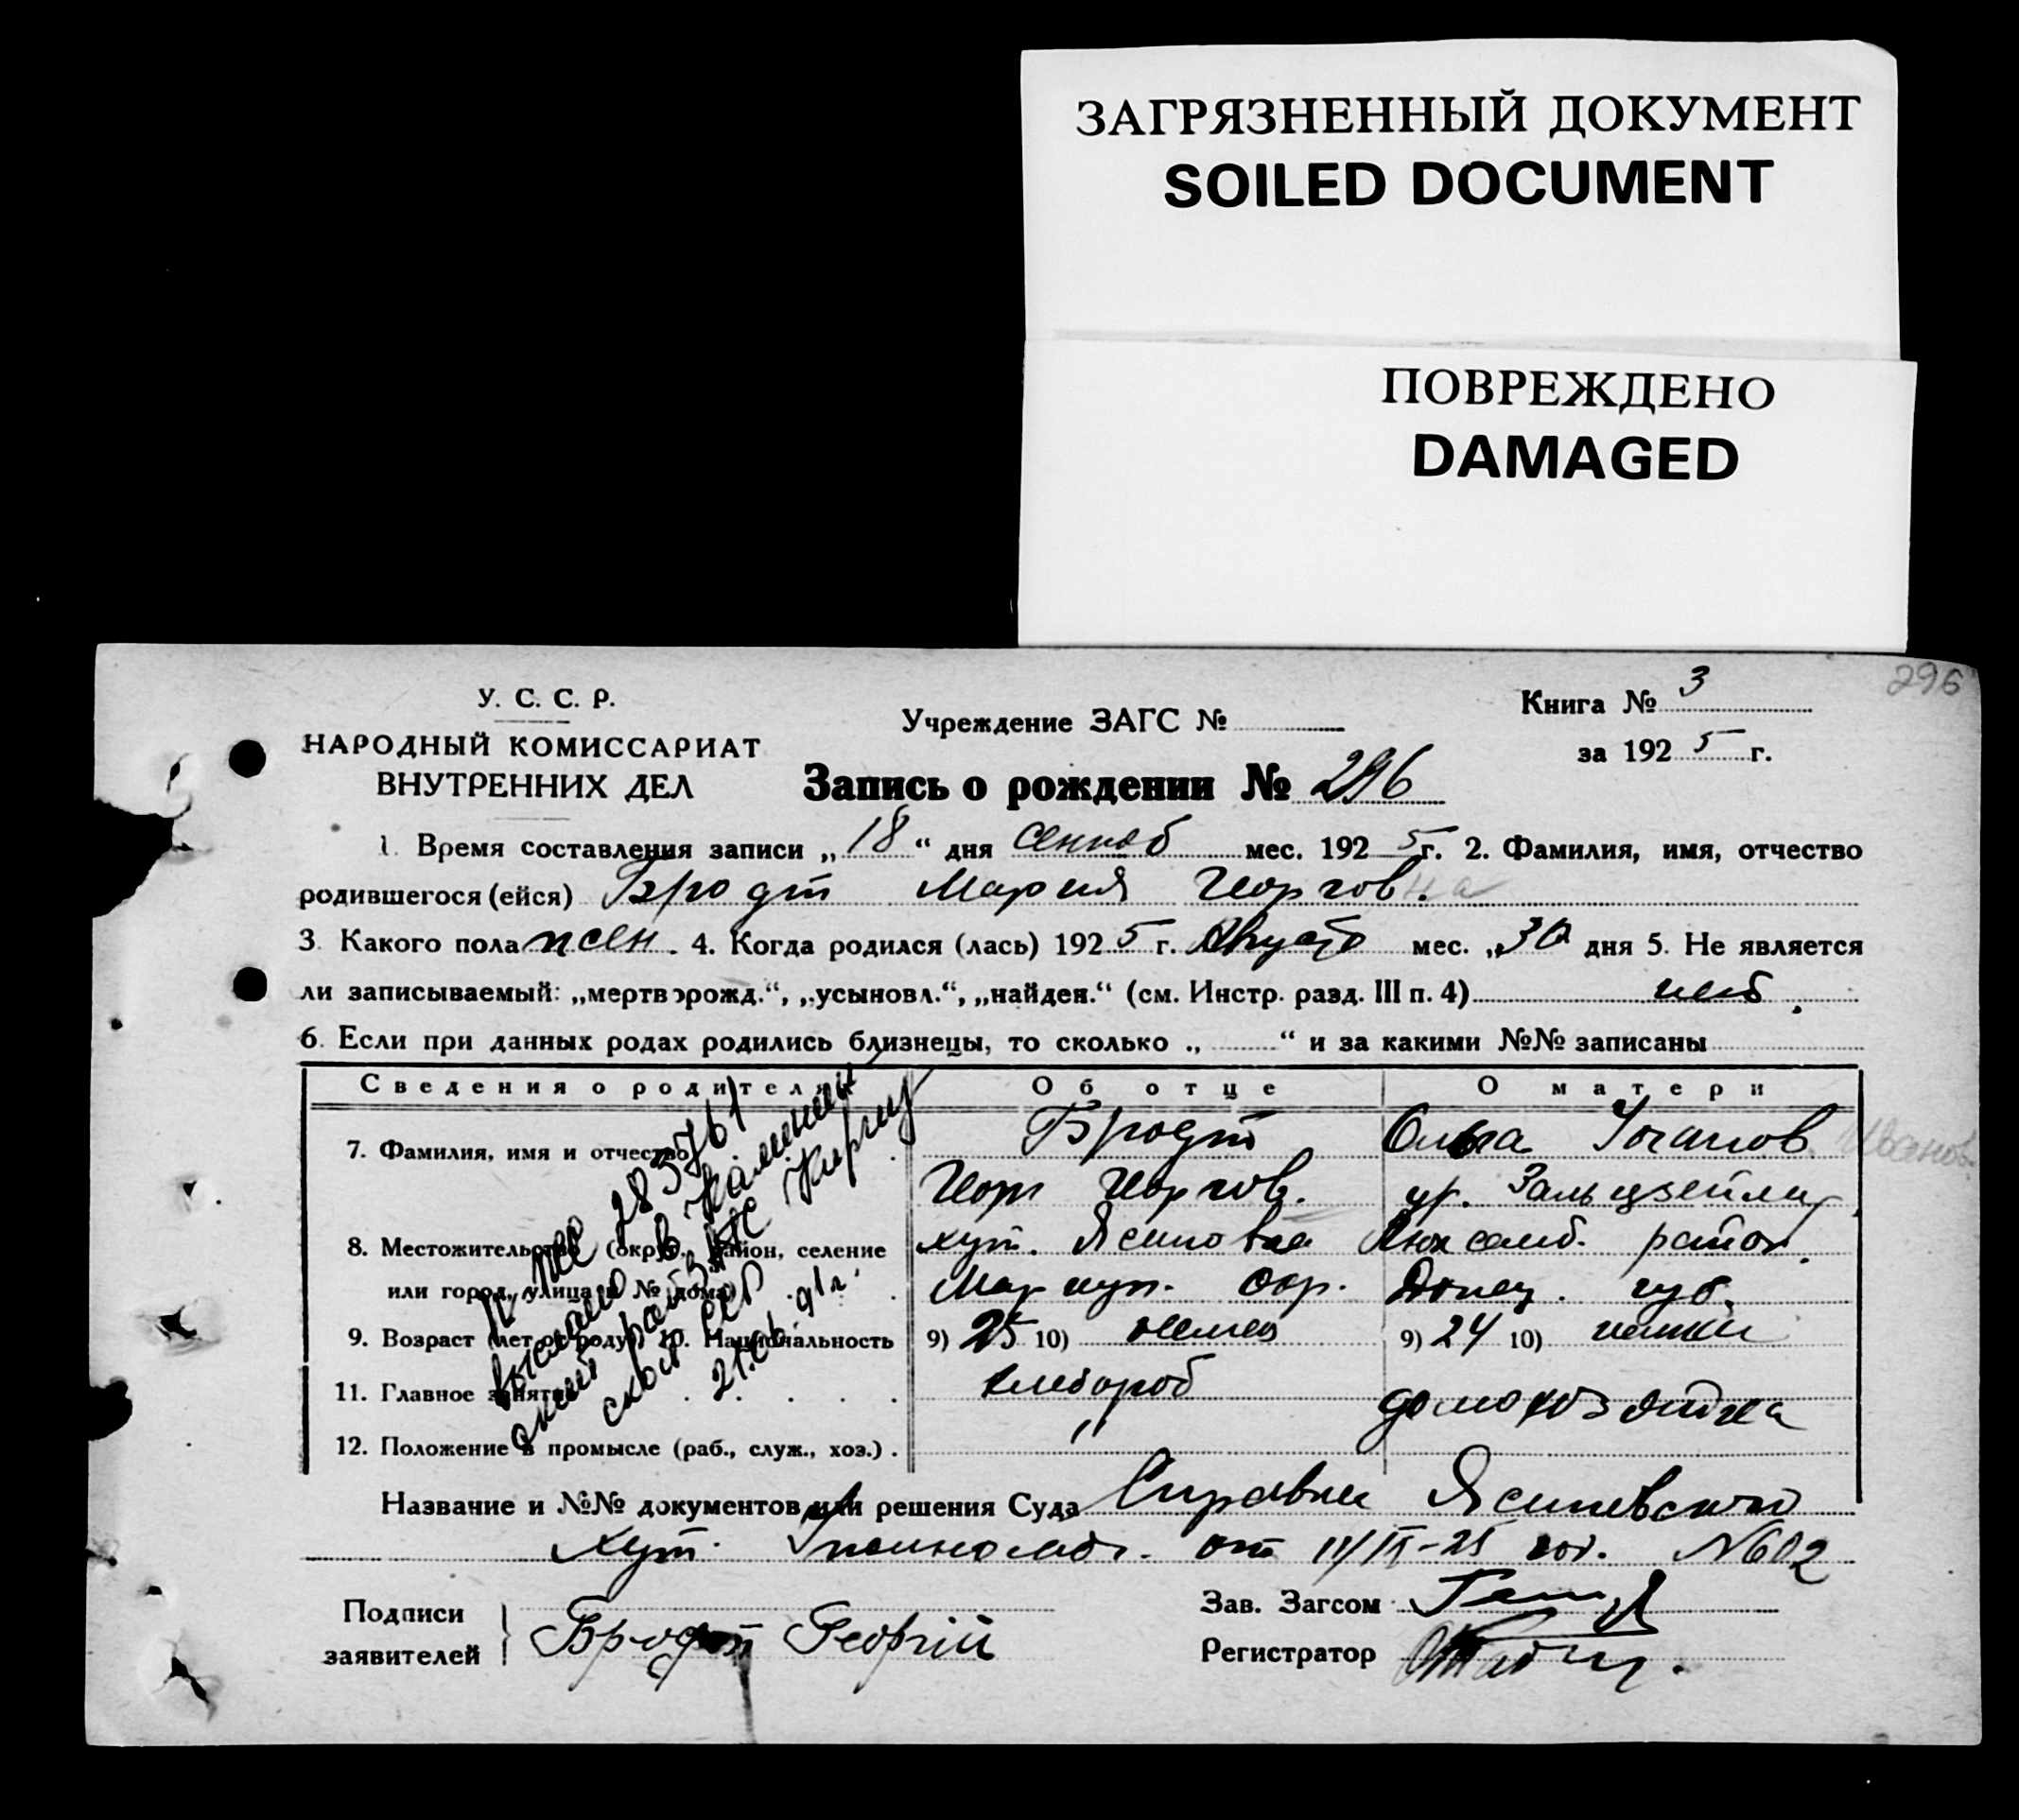 ЗАГРЯЗНЕННЫЙ ДОКУМЕНТ
SOILED DOCUMENT
ПОВРЕЖДЕНО
DAMAGED
296
У. С. С. Р.
НАРОДНЫЙ КОМИССАРИАТ
ВНУТРЕННИХ ДЕЛ
Учреждение ЗАГС №
Книга № 3
за 192 5 г.
Запись о рождении № 296
1. Время составления записи „ 18 “ дня сентяб мес. 192 5 г. 2. Фамилия, имя, отчество
родившегося (ейся) Бродт Мария Георгов.на
3. Какого пола жен. 4. Когда родился (лась) 192 5 г. Августа мес. „30 дня 5. Не является
ли записываемый: „мертворожд.“, „усыновл.“, „найден.“ (см. Инстр. разд. III п. 4) нет.
6. Если при данных родах родились близнецы, то сколько „ “ и за какими №№ записаны
Сведения о родителях Об отце О матери
7. Фамилия, имя и отчество Бродт Ольга Иоганов.
Георг Георгов. ур.
8. Местожительство (округ, район, селение хут. Ясиновка район.
или город, улица и № дома) Мариуп. окр. Донец. губ.
9. Возраст (лет от роду) 10. Национальность 9) 25 10) немец 9) 24 10) немка
11. Главное занятие хлебороб домохозяйка
12. Положение в промысле (раб., служ., хоз.) . "
II ЯС 283761
выслано в
ский райЗАГС Киргиз
ской ССР
21.06.91г.
Название и №№ документов или решения Суда Справка Ясиневского
хут. от 11/IX-25 год. №602
Подписи
заявителей Бродт Георгий
Зав. Загсом
Регистратор